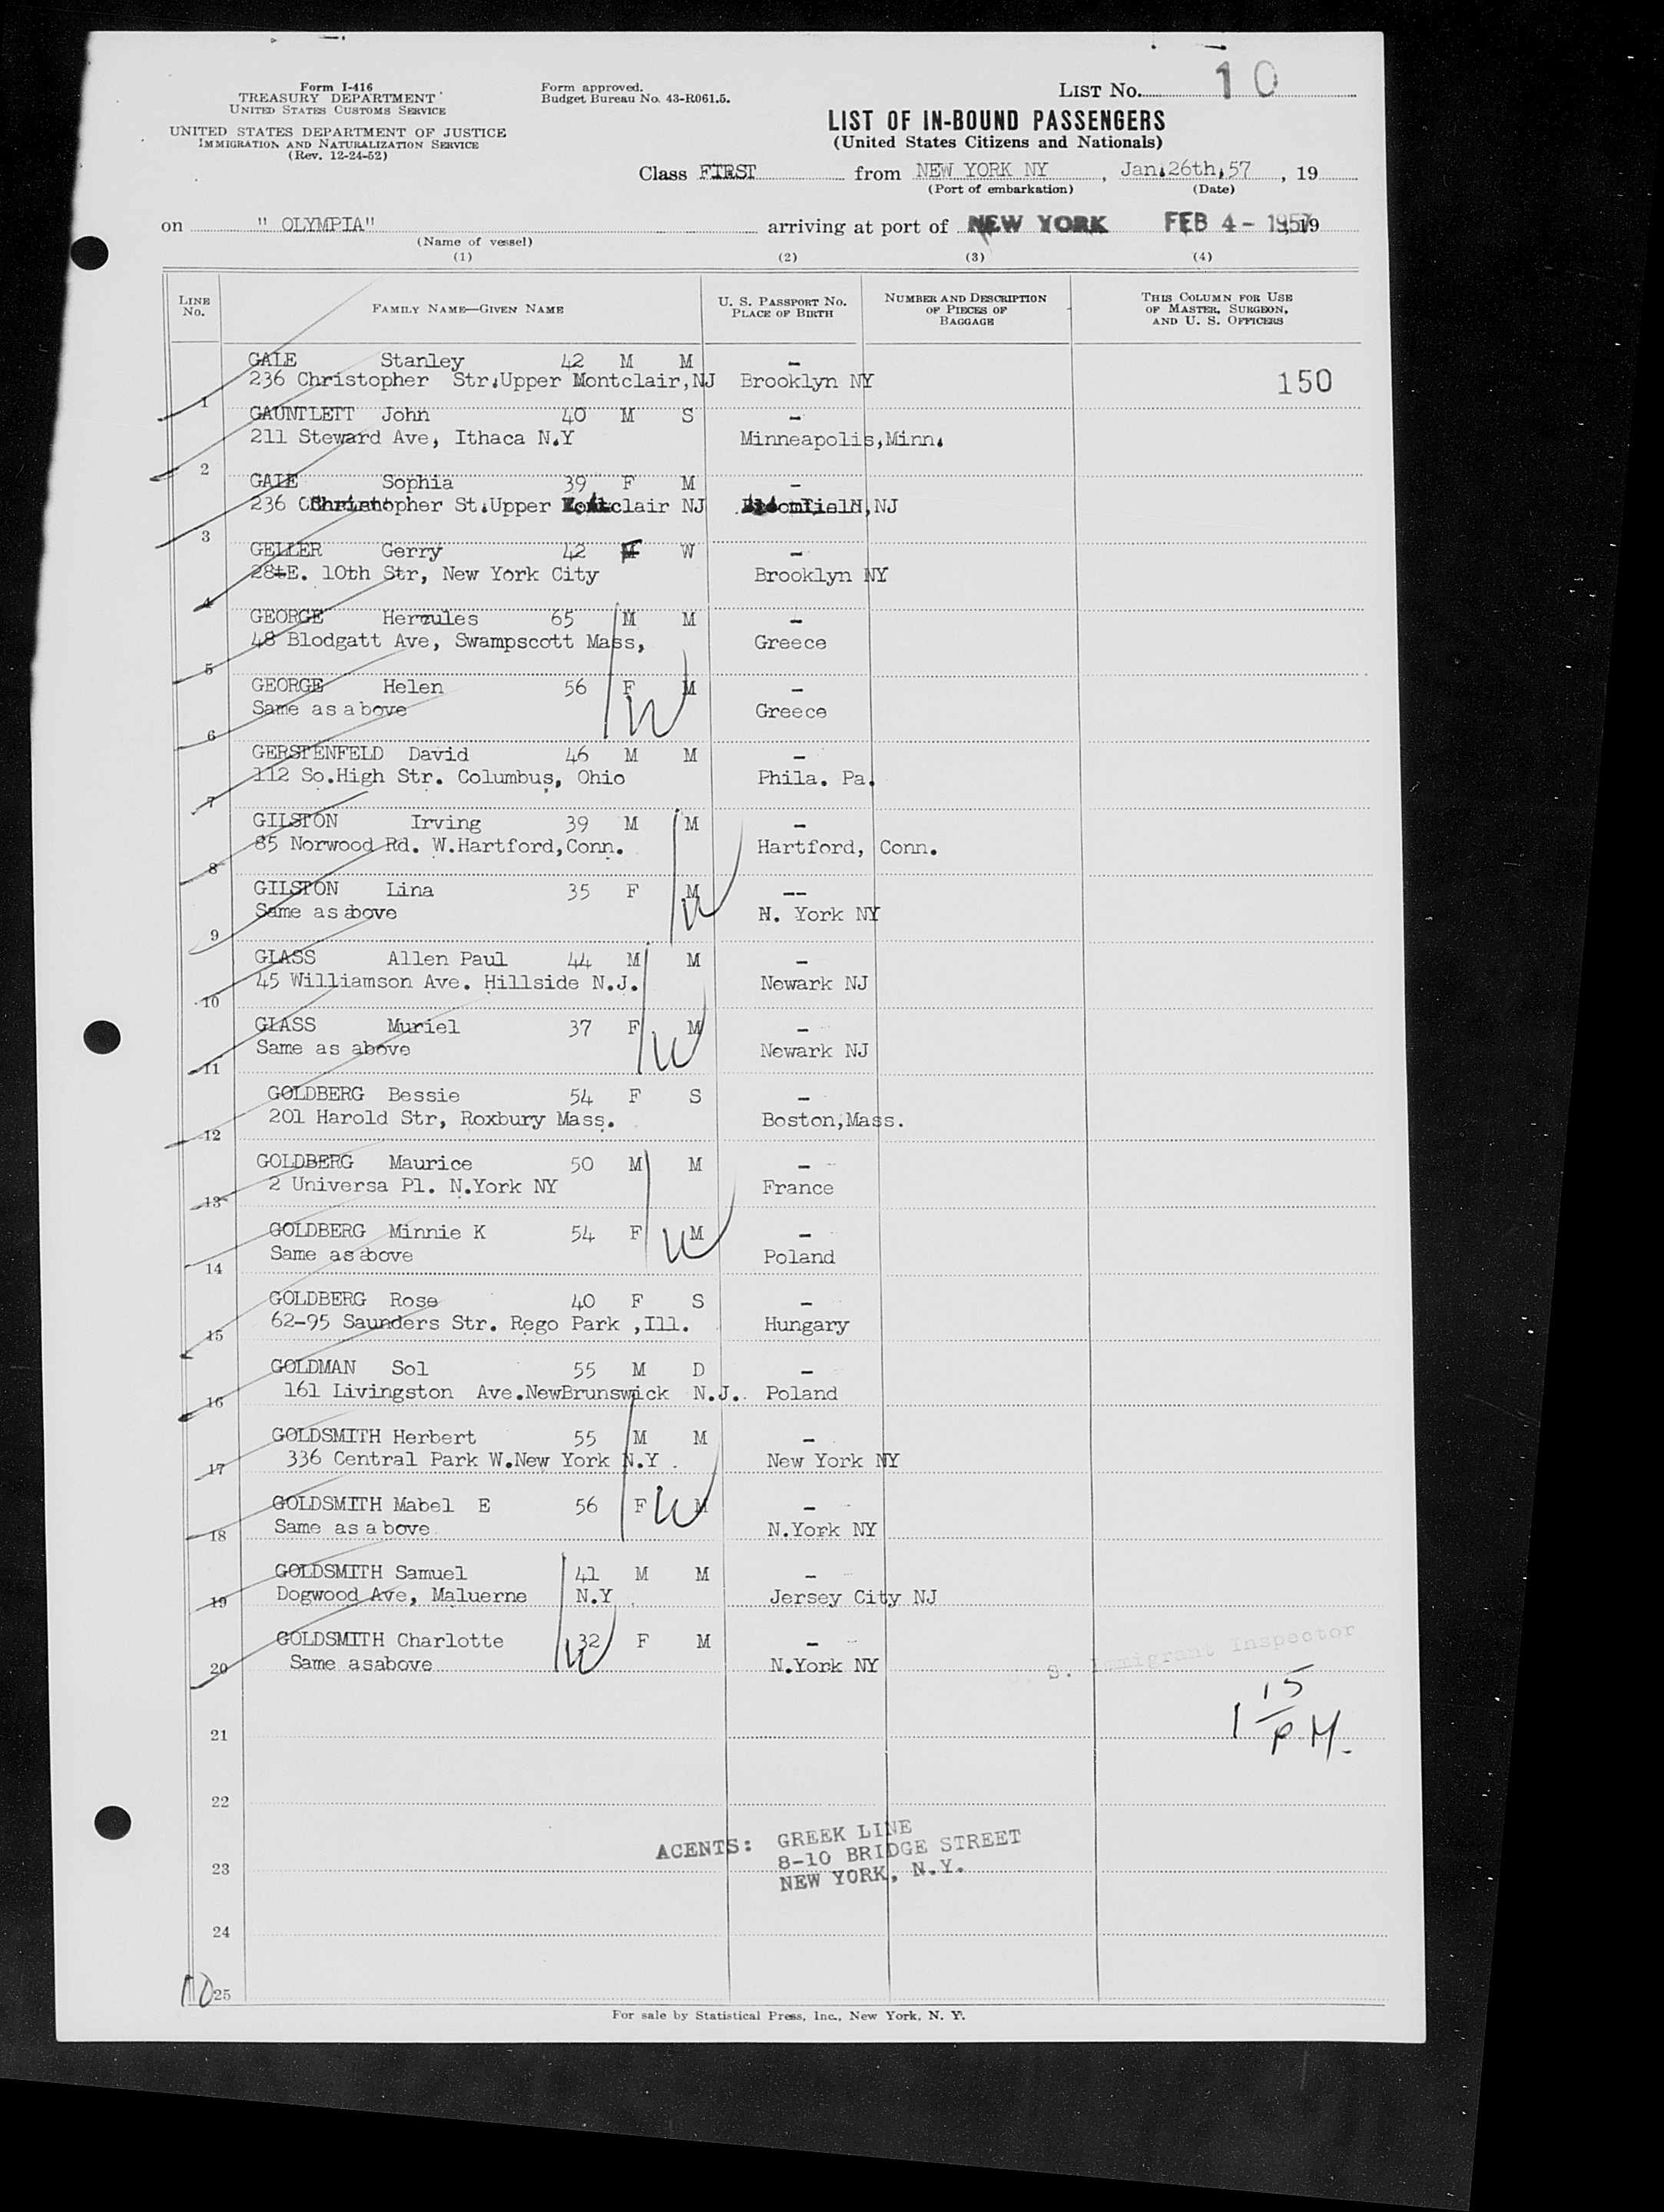 Form I-416
TREASURY DEPARTMENT
UNITED STATES CUSTOMS SERVICE
UNITED STATES DEPARTMENT OF JUSTICE
IMMIGRATION AND NATURALIZATION SERVICE
(Rev. 12-24-52)
Form approved.
Budget Bureau No. 43-R061.5.
LIST No. 10
LIST OF IN-BOUND PASSENGERS
(United States Citizens and Nationals)
Class FIRST from NEW YORK NY, Jan.26th,57, 19
(Port of embarkation) (Date)
on " OLYMPIA" arriving at port of NEW YORK FEB 4 - 1957, 19
(Name of vessel)
(1) (2) (3) (4)
LINE No. FAMILY NAME—GIVEN NAME U. S. PASSPORT No. PLACE OF BIRTH NUMBER AND DESCRIPTION OF PIECES OF BAGGAGE THIS COLUMN FOR USE OF MASTER, SURGEON, AND U. S. OFFICERS
GALE Stanley 42 M M -
1 236 Christopher Str.Upper Montclair,NJ Brooklyn NY 150
GAUNTLETT John 40 M S -
2 211 Steward Ave, Ithaca N.Y Minneapolis,Minn.
GALE Sophia 39 F M -
3 236 Christopher St.Upper Montclair NJ Bloomfield,NJ
GELLER Gerry 42 F W -
4 28 E. 10th Str, New York City Brooklyn NY
GEORGE Hercules 65 M M -
5 48 Blodgatt Ave, Swampscott Mass, Greece
GEORGE Helen 56 F M -
6 Same as above Greece
GERSTENFELD David 46 M M -
7 112 So.High Str. Columbus, Ohio Phila. Pa.
GILSTON Irving 39 M M -
8 85 Norwood Rd. W.Hartford,Conn. Hartford, Conn.
GILSTON Lina 35 F M --
9 Same as above N. York NY
GLASS Allen Paul 44 M M -
10 45 Williamson Ave. Hillside N.J. Newark NJ
GLASS Muriel 37 F M -
11 Same as above Newark NJ
GOLDBERG Bessie 54 F S -
12 201 Harold Str, Roxbury Mass. Boston,Mass.
GOLDBERG Maurice 50 M M -
13 2 Universa Pl. N.York NY France
GOLDBERG Minnie K 54 F M -
14 Same as above Poland
GOLDBERG Rose 40 F S -
15 62-95 Saunders Str. Rego Park ,Ill. Hungary
GOLDMAN Sol 55 M D -
16 161 Livingston Ave.NewBrunswick N.J. Poland
GOLDSMITH Herbert 55 M M -
17 336 Central Park W.New York N.Y. New York NY
GOLDSMITH Mabel E 56 F M -
18 Same as above N.York NY
GOLDSMITH Samuel 41 M M -
19 Dogwood Ave, Maluerne N.Y Jersey City NJ
GOLDSMITH Charlotte 32 F M -
20 Same asabove N.York NY
S. Immigrant Inspector
1 15
P.M.
21
22
AGENTS: GREEK LINE
8-10 BRIDGE STREET
NEW YORK, N.Y.
23
24
10 25
For sale by Statistical Press, Inc., New York, N. Y.